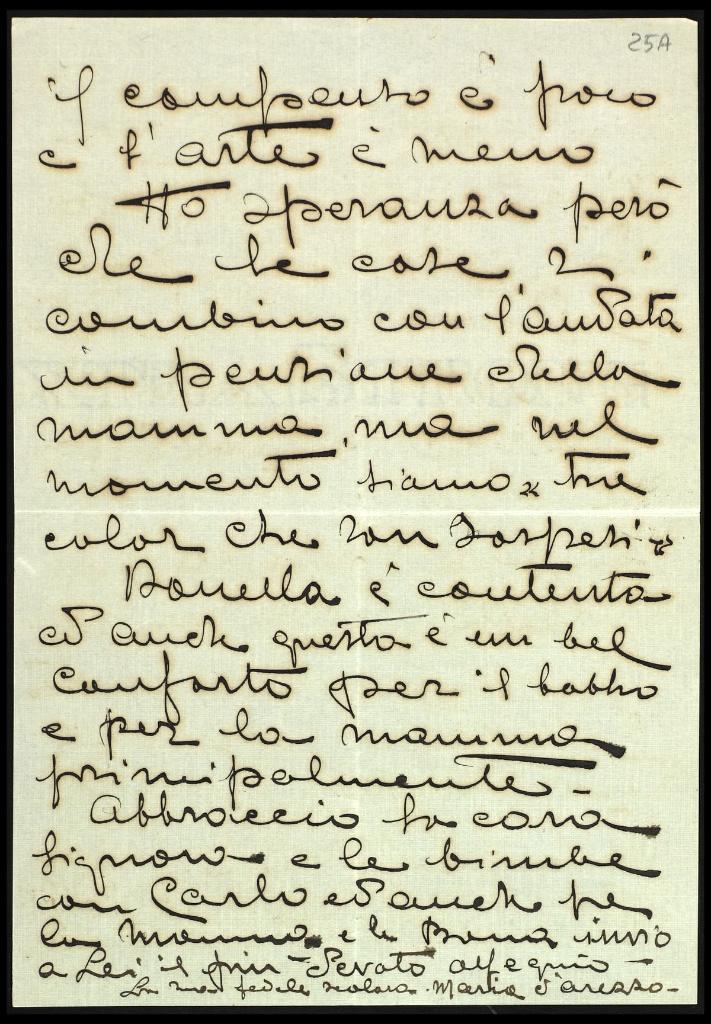 25A
il compenso è poco
e l'arte è meno
Ho speranza però
che le cose si
combino con l'andata
in pensione della
mamma, ma nel
momento siamo "tra
color che son sospesi"
Bonella è contenta
ed anche questo è un bel
conforto per il babbo
e per la mamma
principalmente -
Abbraccio la cara
Signora e le bimbe
con Carlo ed anche per
la Mamma e la Bona invio
a Lei il più devoto ossequio -
La sua fedele scolara Maria d'Arezzo -